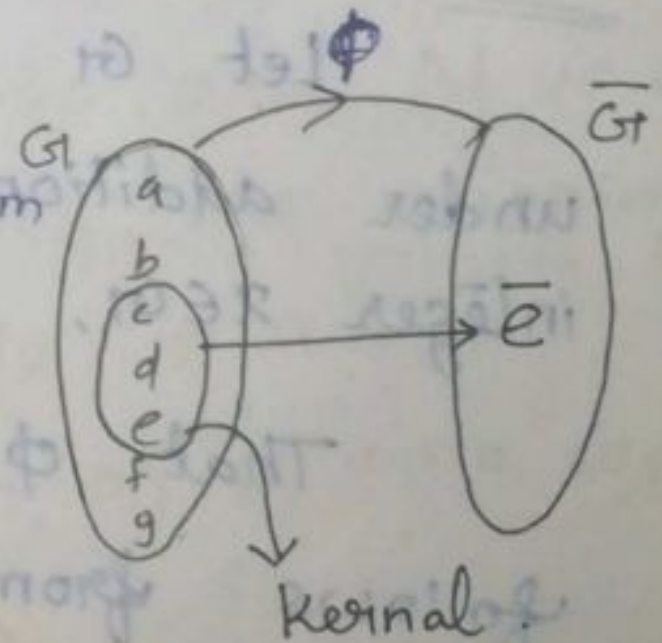 Φ
G
Ḡ
m
a
b
c
d
e
f
g
ē
Kernal.